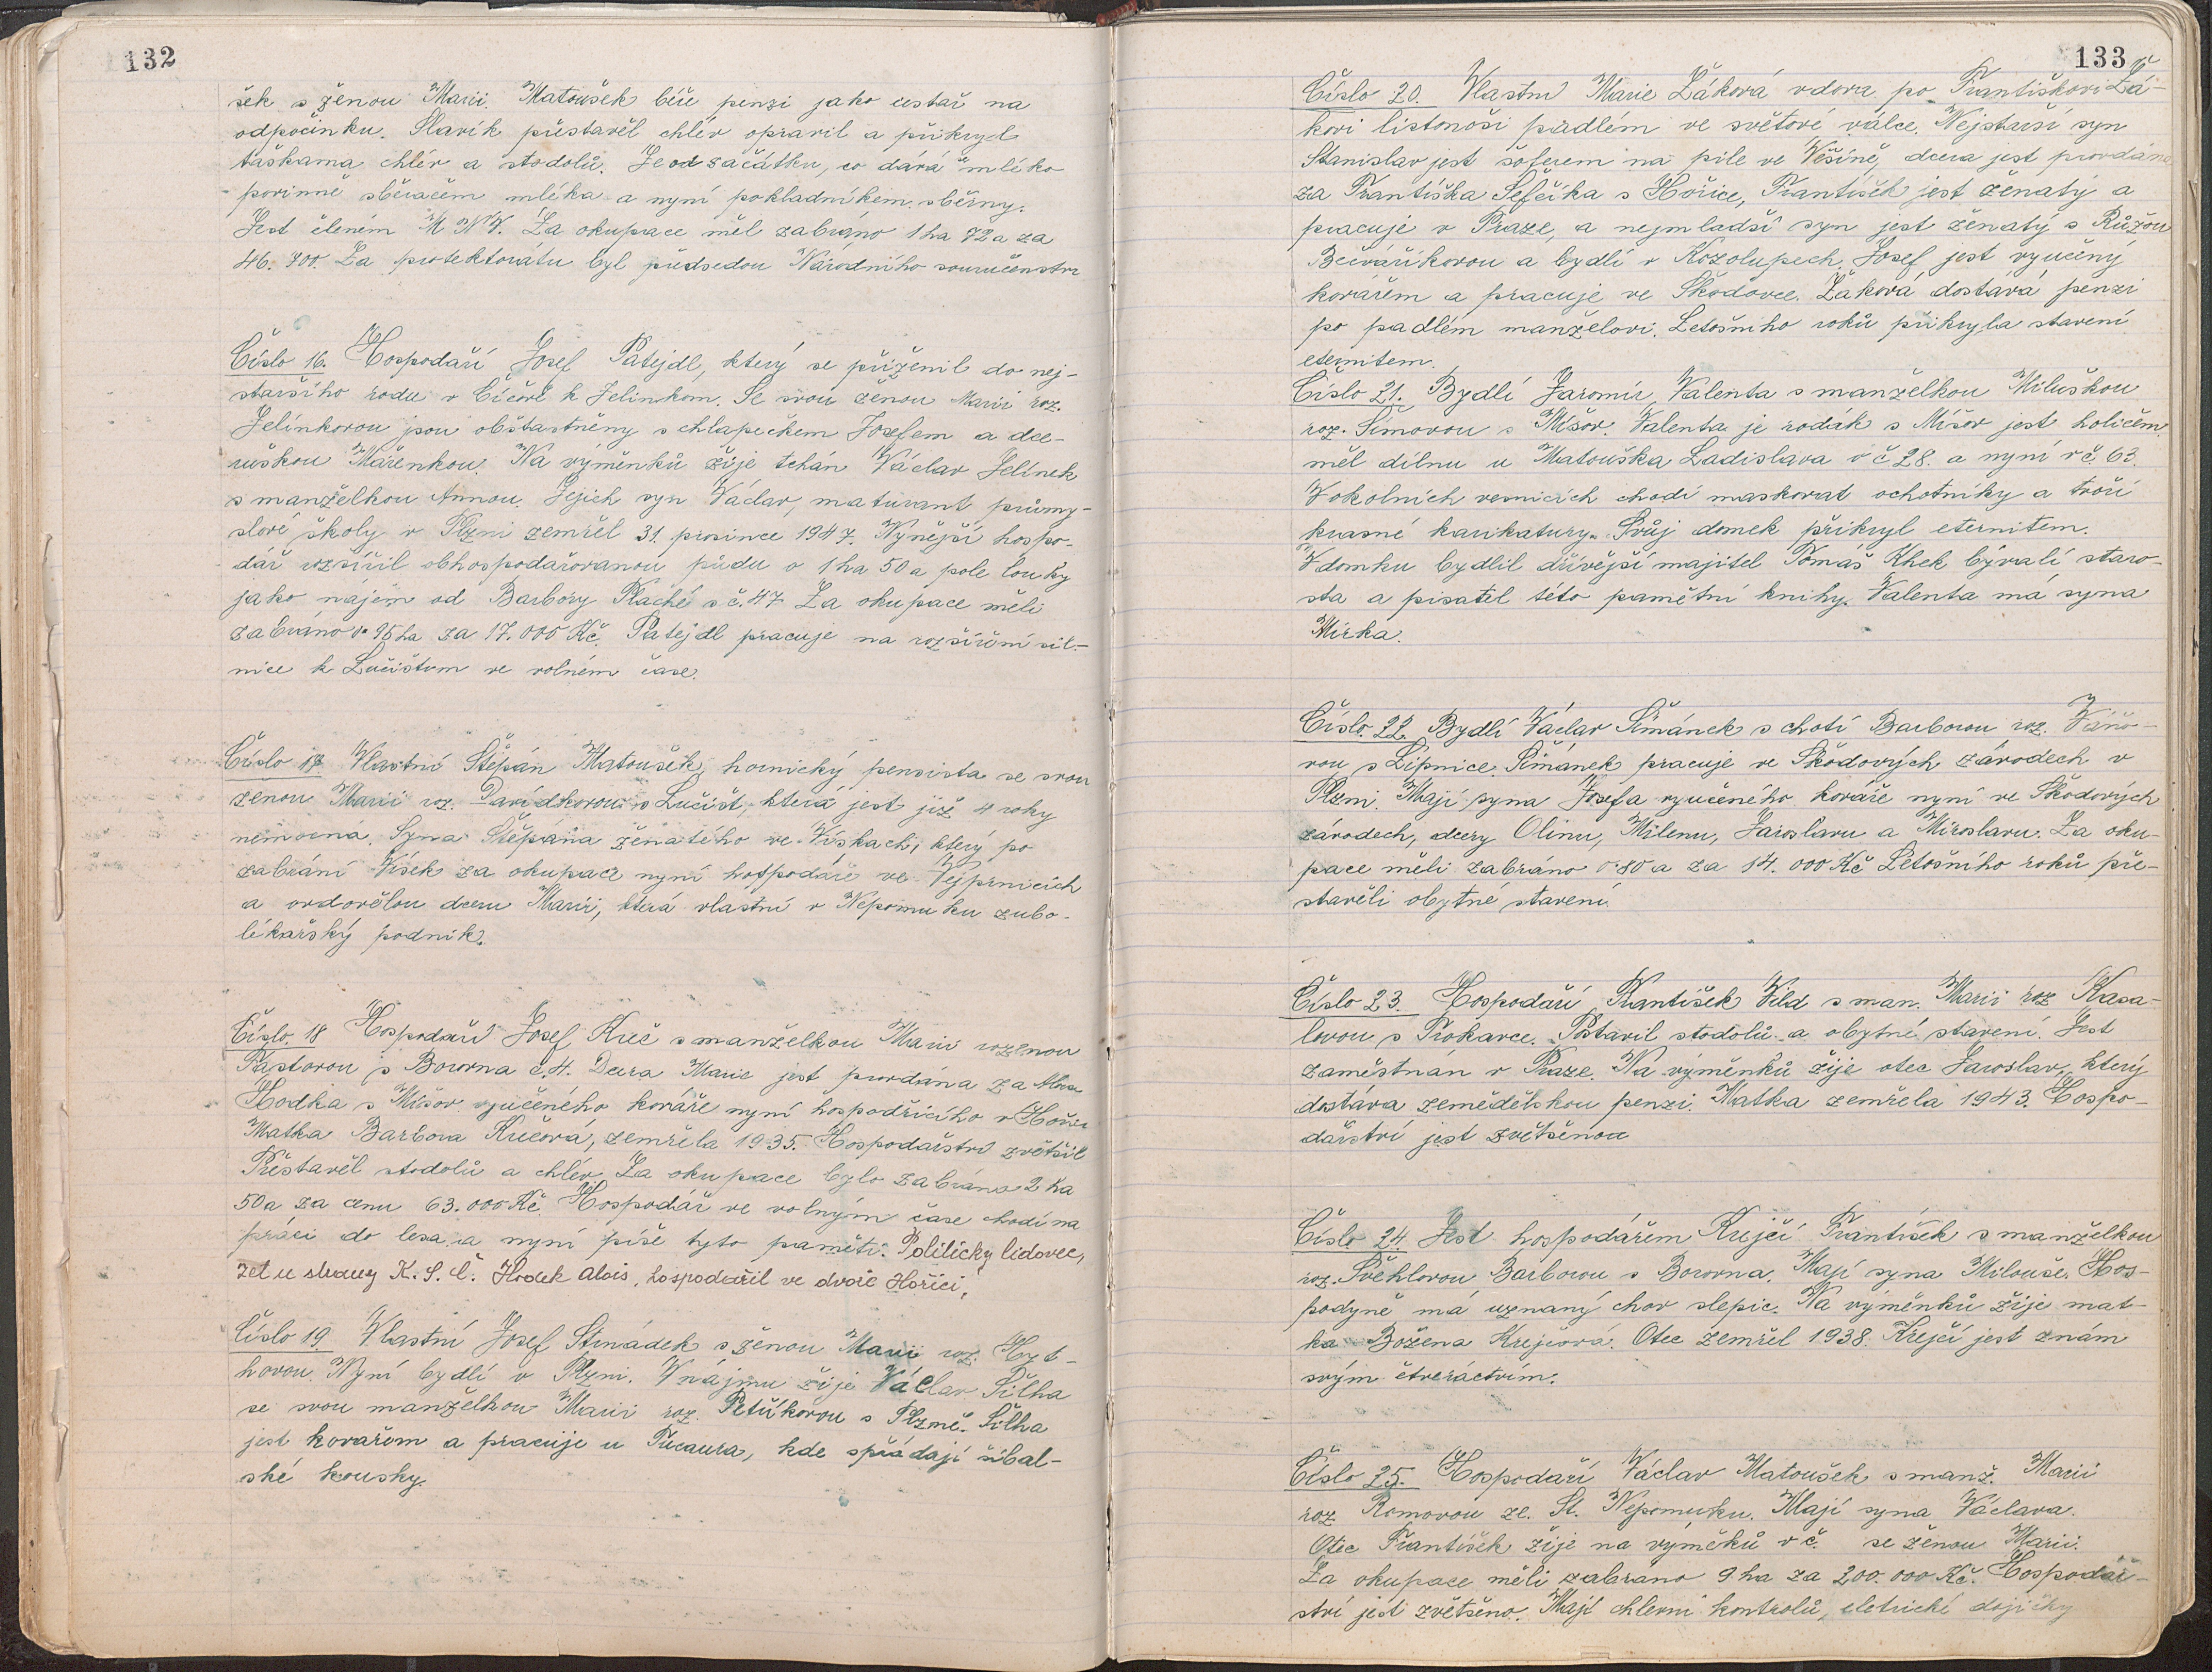 132
šek s ženou Marii. Matoušek bíře penzi jako cestář na
odpočinku. Slavík přestavěl chlév opravil a přikryl
taškama chlév a stodolů. Je od začátku, co dává mléko
povinně sběračem mléka a nyní pokladníkem sběrny.
Jest členém M N V. Za okupace měl zabráno 1 ha 72 a za
46.700. Za protektorátu byl předsedou Národního souručenství
Číslo 16. Hospodaří Josef Patejdl, který se přiženil do nej-
staršího rodu v Číčově k Jelínkom. Se svou ženou Marii roz.
Jelínkovou jsou obšťastněny s chlapečkem Josefem a dce-
ruškou Mařenkou. Na výměnků žije tchán Václav Jelínek
s manželkou Annou. Jejich syn Václav, maturant průmy-
slové školy v Plzni zemřel 31. prosince 1947. Nynější hospo-
dář rozšířil obhospodařovanou půdu o 1 ha 50 a pole louky
jako nájem od Barbory Plaché s č. 47 Za okupace měli
zabráno 0.95 ha za 17.000 Kč. Patejdl pracuje na rozšíření sil-
nice k Lučištum ve volném čase.
Číslo 17. Vlastní Štěpán Matoušek, hornický pensista se svou
ženou Marii roz. Davídkovou s Lučišť, která jest již 4 roky
nemocná. Syna Štěpána ženatého ve Vískach, který po
zabrání Vísek za okupace nyní hospodáře ve Vejprnicích
a ovdovělou dceru Marii, která vlastní v Nepomuku zubo-
lékařský podnik.
Číslo. 18 Hospodaří Josef Kreč s manželkou Marii rozenou
Pastorou s Borovna č. 4. Dcera Marie jest provdána za Aloise
Hodka s Míšov vyučeného kováře nyní hospodřícího v Hořici
Matka Barbora Krečová, zemřela 1935. Hospodařství zvětšil
Přestavěl stodolů a chlév. Za okupace bylo zabráno 2 ha
50 a za cenu 63.000 Kč. Hospodář ve volným čase chodí na
práci do lesa a nyní píše tyto paměti. Politicky lidovec,
zeť u strany K.S.Č. Hodek Alois, hospodařil ve dvoře Hořici,
Číslo 19. Vlastní Josef Strnádek s ženou Marii roz. Hyt-
hovou. Nyní bydlí v Plzni. V nájmu žije Václav Šilha
se svou manželkou Marii roz. Petříkovou s Plzně. Šilha
jest kovařem a pracuje u Tricaura, kde spřádají šibal-
ské kousky.
133
Číslo 20. Vlastní Marie Žáková vdova po Františkovi Žá-
kovi listonoši padlém ve světové válce. Nejstarší syn
Stanislav jest šoferem na pile ve Věšíně, dcera jest provdána
za Františka Šefčíka s Hořice, František jest ženatý a
pracuje v Praze, a nejmladší syn jest ženatý s Růžou
Bečváříkovou a bydlí v Kozolupech. Josef jest vyučený
kovářem a pracuje ve Škodovce. Žaková dostává penzi
po padlém manželovi. Letošního roků přikryla stavení
eternitem.
Číslo 21. Bydlí Jaromír Valenta s manželkou Miluškou
roz. Šímovou s Míšov. Valenta je rodák s Míšov jest holičem
měl dílnu u Matouška Ladislava v č 28. a nyní v č. 63.
V okolních vesnicích chodí maskovat ochotníky a tvoří
krasné karikatury. Svůj domek přikryl eternitem.
V domku bydlil dřívější majitel Tomáš Khek bývalí staro-
sta a pisatel této pamětní knihy. Valenta má syna
Mirka.
Číslo. 22. Bydlí Václav Šimánek s chotí Barborou roz. Váňo-
vou s Lipnice. Šimánek pracuje ve Škodových závodech v
Plzni. Mají syna Josefa vyučeného kováře nyní ve Škodových
závodech, dcery Olinu, Milenu, Jaroslavu a Miroslavu. Za oku-
pace měli zabráno 0.80 a za 14.000 Kč Letošního roků pře-
stavěli obytné stavení.
Číslo 23. Hospodaří František Vild s man. Marii roz Kasa-
lovou s Trokavce. Postavil stodolů a obytné stavení. Jest
zaměstnán v Praze. Na výměnků žije otec Jaroslav, který
dostáva zemědělskou penzi. Matka zemřela 1943. Hospo-
dařství jest zvětšenou
Číslo 24. Jest hospodářem Krejčí František s manželkou
roz. Švehlovou Barborou s Borovna. Mají syna Milouše. Hos-
podyně má uznaný chov slepic. Na výměnků žije mat-
ka Božena Krejčová. Otec zemřel 1938. Krejčí jest znám
svým čtveráctvím.
Číslo 25. Hospodaří Václav Matoušek s manž. Marii
roz. Romovou ze. St. Nepomuku. Mají syna Václava.
Otec František žije na výměků v č. se ženou Marii.
Za okupace měli zabráno 9 ha za 200.000 Kč. Hospodář-
ství jest zvětšeno. Mají chlevní kontrolů, eletrické dojičky